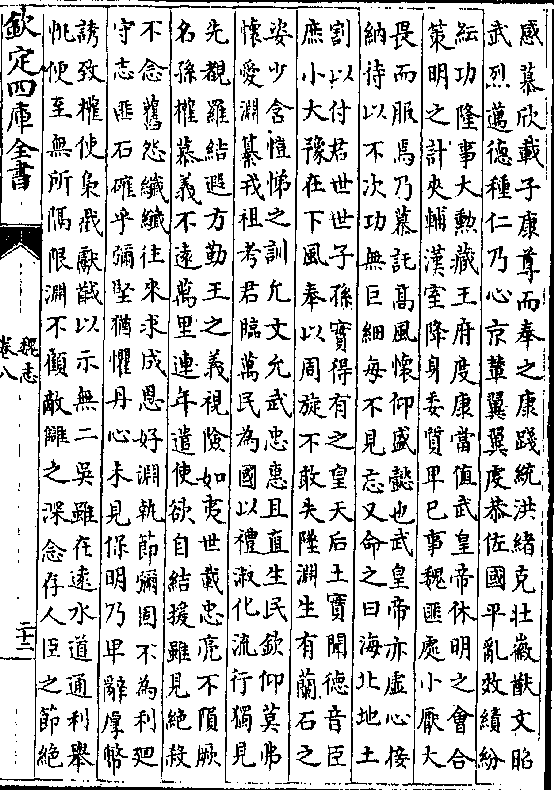 感慕欣載子康尊而奉之康踐統洪緒克壯徽猷文昭
武烈邁德種仁乃心京輦翼翼虔恭佐國平亂效績紛
紜功隆事大勲藏王府度康當值武皇帝休明之會合
策明之計夾輔漢室降身委質卑已事魏匪處小厭大
畏而服焉乃慕託髙風懷仰盛懿也武皇帝亦虚心接
納待以不次功無巨細每不見忘又命之曰海北地土
割以付君世世子孫實得有之皇天后土實聞德音臣
庶小大豫在下風奉以周旋不敢失墜淵生有蘭石之
姿少含愷悌之訓允文允武忠惠且直生民欽仰莫弗
懷愛淵纂戎祖考君臨萬民為國以禮淑化流行獨見
先覩羅結遐方勤王之義視險如夷世載忠亮不隕厥
名孫權慕義不遠萬里連年遣使欲自結援雖見絶殺
不念舊怨纖纖往來求成恩好淵執節彌固不為利廻
守志匪石確乎彌堅猶懼丹心未見保明乃卑辭厚幣
誘致權使梟截獻馘以示無二吳雖在逺水道通利舉
帆便至無所隔限淵不顧敵讎之深念存人臣之節絶
欽定四庫全書
魏志
卷八
二十二